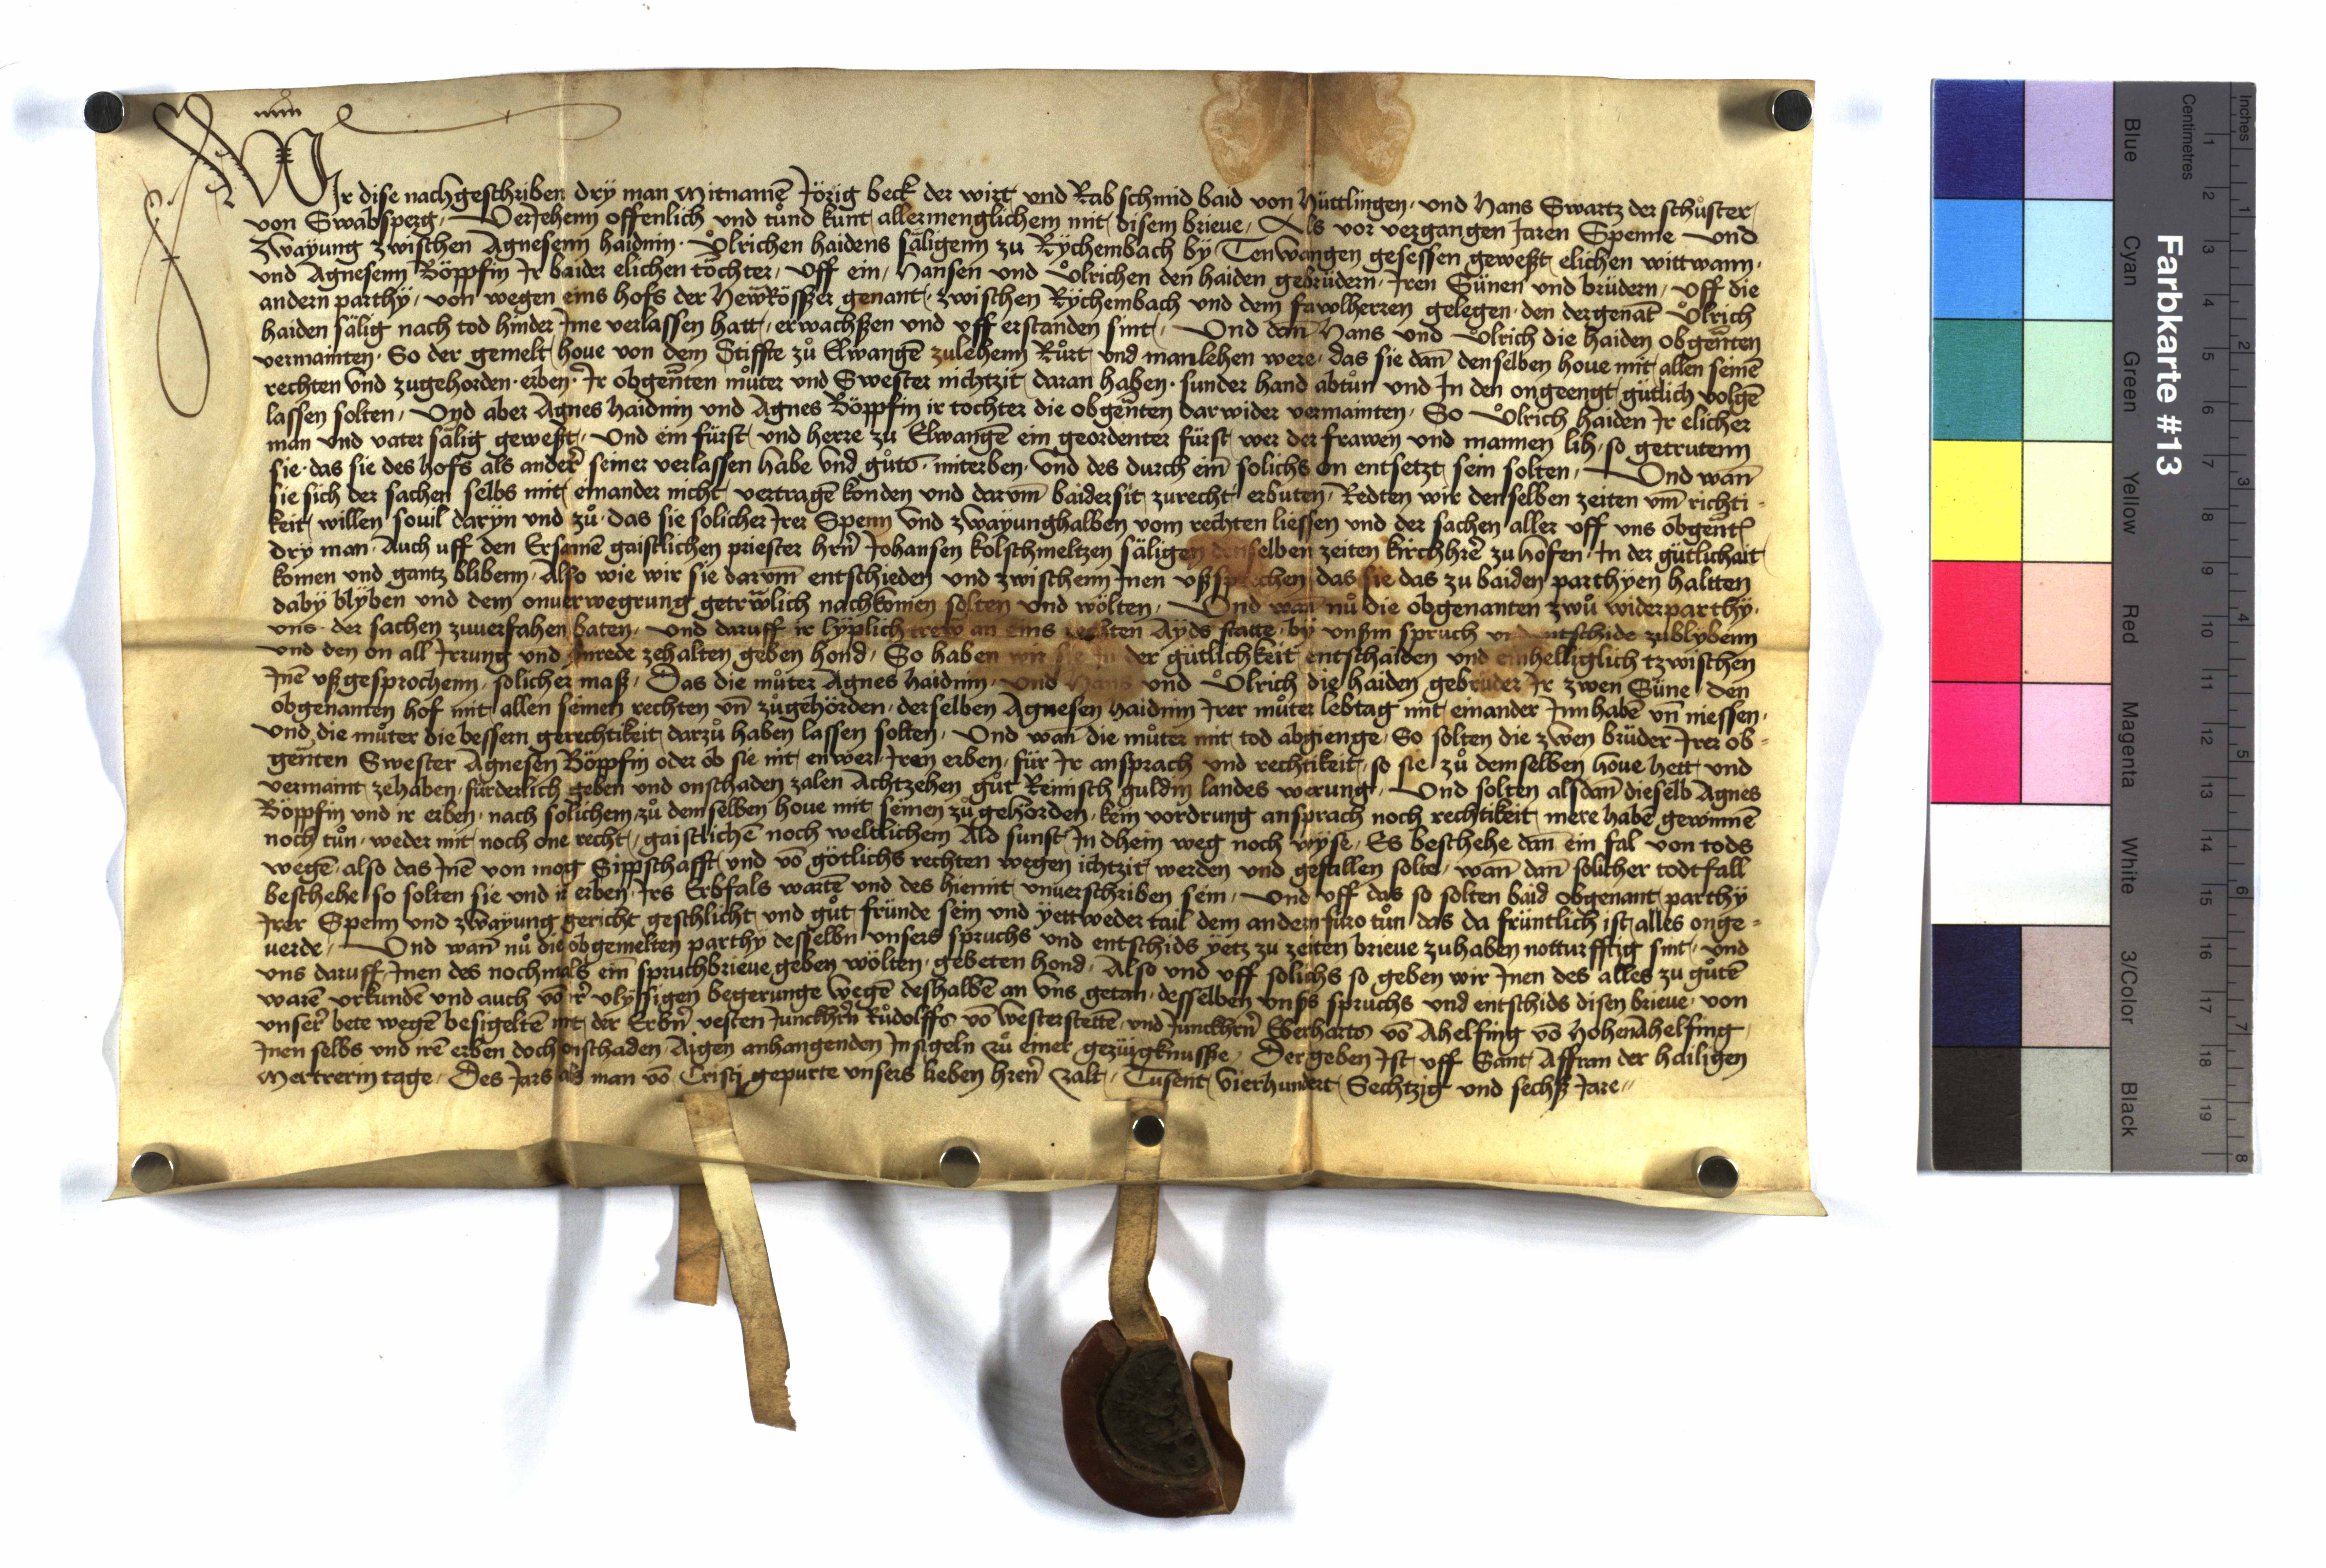 Wir dise nachgeschriben drÿ man Mitnamē Jörig beck der wirt und Rab schmid baid von Hüttlingen und Hans Swartz der schůster
von Swabsperg Veriehenn offenlich und tůnd kunt allermenglichem mit disem brieve Als vor vergangen Jaren Spenne und
Zwayung zwischen Agnesenn haidnin Ůlrichen haidens säligenn zu Rÿchembach bÿ Tenwangen gesessen gewest elichen wittwann
und Agnesenn Böppfin Jr baider elichen töchter uff ein Hansen und Ůlrichen den haiden gebrüdern Jren Sünen und brüdern uff die
andern parthÿ von wegen eins hofs der Hewrösszer genant zwischen Rÿchembach und dem fawlherren gelegen den dergenāt Ůlrich
haiden sälig nach tod hinder Jme verlassen hatt erwachszen und uff erstanden sint Und dañ Hans und Ůlrich die haiden obgēnten
vermainten So der gemelt houe von dem Stiffte zů Elwangē zulehenn Růrt und manlehen were das sie dañ denselben houe mit allen seinē
rechten und zugehorden erben Jr obgēnten můter und Swester nichtzit daran haben sunder hand abtůn und Jn den ongeengt gütlich volgē
lassen solten Und aber Agnes haidnin und Agnes Böppfin ir tochter die obgēnten darwider vermainten So Ůlrich haiden Jr elicher
man und vater sälig gewest Und ein fürst und herre zu Elwangē ein geordenter fürst wer der frawen und mannen lih so getrutenn
sie das sie des hofs als anderr seiner verlassen habe und gůts miterben und des durch ein solichs on entsetzt sein solten Und wañ
sie sich der sachen selbs mit einander nicht vertragē konden und darum̄ baidersit zurecht erbuten Redten wir denselben zeiten um̄ richti
keit willen souil darÿn und zů das sie solicher Jrer Spenn und zwaÿunghalben vom rechten liessen und der sachen aller uff uns obgēnt
drÿ man Auch uff den Ersamē gaistlichen priester hrñ Johansen kolschmeltzen säligen denselben zeiten kirchhrē zu hofen Jn der gütlichait
komen und gantz blibenn Also wie wir sie darum̄ entschieden und zwischenn Jnen uszsprechen das sie das zu baiden parthÿen haltten
dabÿ blÿben und dem onuerwegrung getrẅlich nachkomen solten und wölten Und wañ nů die obgenanten zwů widerparthÿ
uns der sachen zuuerfahen baten und daruff ir lÿplich trew an eins rechten Aÿds statte bÿ unszm spruch und entschide zublÿbenn
und den on all Jrrung und Jnrede zehalten geben hond So haben wir sie Jn der gütlichkeit entschaiden und einhelliglich tzwischen
Jnē uszgesprochenn solicher masz Das die můter Agnes haidnin und Hans und Ůlrich die haiden gebrüder Jr zwen Süne den
obgenanten hof mit allen seinen rechten uñ zůgehörden derselben Agnesen haidnin Jrer můter lebtag mit einander Jnnhabē uñ niessen
und die můter die bessern gerechtikeit darzů haben lassen solten Und wañ die můter mit tod abgienge So solten die zwen brüder Jrer ob
gēnten Swester Agnesen Böppfin oder ob sie nit enwer Jren erben für Jr ansprach und rechtikeit so sie zů demselben houe hett und
vermaint zehaben fürderlich geben und onschaden zalen Achtzehen gůt Reinisch guldin landes werung Und solten alsdañ dieselb Agnes
Böppfin und ir erben nach solichem zů demselben houe mit seinen zůgehörden kein vordrung ansprach noch rechtikeit mere habē gewinnē
noch tůn weder mit noch one recht gaistlichē noch weltlichem Ald sunst Jn dhein weg noch wÿse Es beschehe dañ ein fal von tods
wegē also das Jnē von mog Sippschafft und vō götlichs rechten wegen ichtzit werden und gefallen solte wañ dañ solicher todtfall
beschehe so solten sie und ir erben Jrs Erbfals wartē und des hiemit unuerschriben sein Und uff das so solten baid obgenant parthÿ
Jrer Spenn und zwaÿung gericht geschlicht und gůt fründe sein und ÿettweder tail dem andern furo tůn das da früntlich ist alles onge
uerde Und wañ nů die obgemelten parthÿ desselbn unsers spruchs und entschids ÿetz zu zeiten brieue zuhaben notturfftig sint und
uns daruff Jnen des nochmals ein spruchbrieue geben wölten gebeten hond Also und uff solichs so geben wir Jnen des alles zu gůtē
warē urkundē und auch vō ir vlÿssigen begerunge wegē deshalbē an uns getan desselben unszs spruchs und entschids disen brieue von
unserr bete wegē besigeltē mit der Erbñ vesten Junckhrñ Růdolffs vō westerstettē und Junckhrñ Eberharts vō Ahelfing vō HohenAhelfing
Jnen selbs und irē erben doch onschaden Aigen anhangenden Jnsigeln zů einer gezügknusse Der geben Jst uff Sant Affran der hailigen
Mertrerin tage Des Jars als man vō Cristj gepurte unsers lieben hreñ zalt Tusent vierhundert Sechtzig und sechsz Jare

Farbkarte #13
Blue Cyan Green Yellow Red Magenta White 3/Color Black
Inches
Centimetres
1 2 3 4 5 6 7 8
1 2 3 4 5 6 7 8 9 10 11 12 13 14 15 16 17 18 19